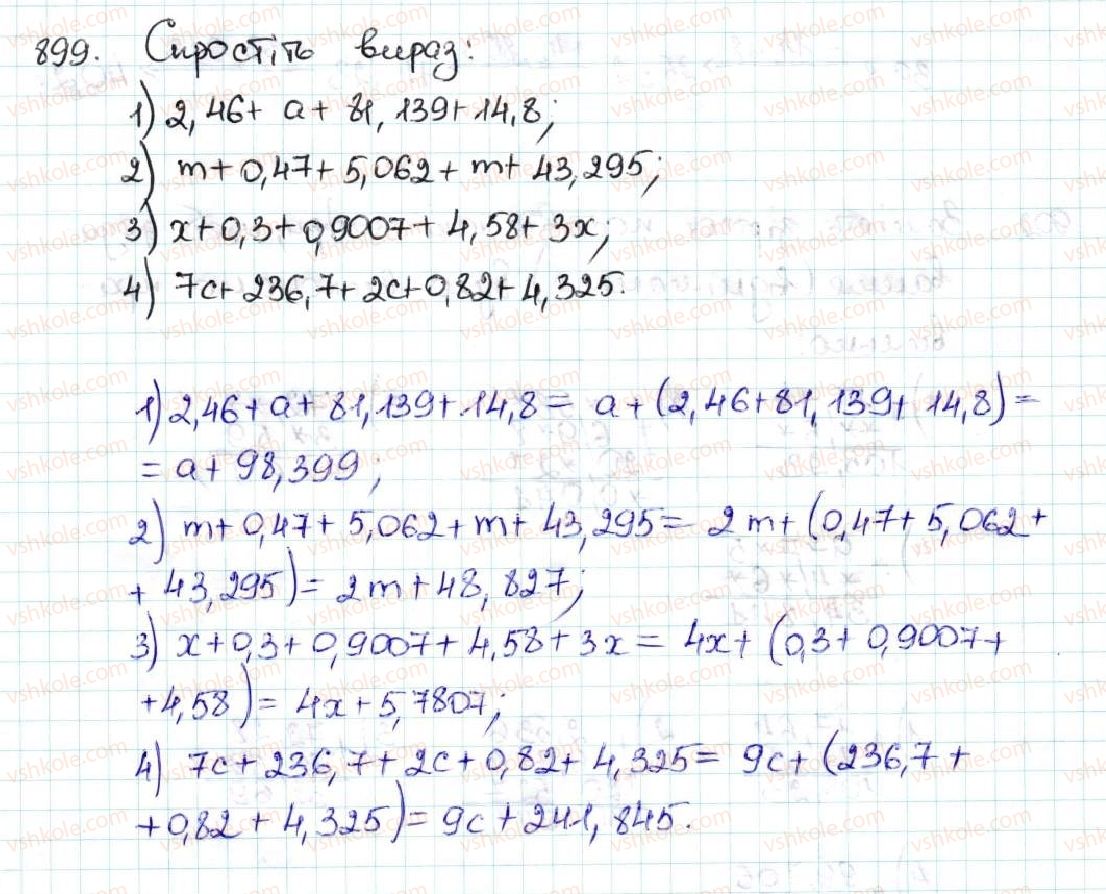 899. Спростіть вираз:
1) 2,46 + a + 81,139 + 14,8;
2) m + 0,47 + 5,062 + m + 43,295;
3) x + 0,3 + 0,9007 + 4,58 + 3x;
4) 7c + 236,7 + 2c + 0,82 + 4,325.
1) 2,46 + a + 81,139 + 14,8 = a + (2,46 + 81,139 + 14,8) =
= a + 98,399;
2) m + 0,47 + 5,062 + m + 43,295 = 2m + (0,47 + 5,062 +
+ 43,295) = 2m + 48,827;
3) x + 0,3 + 0,9007 + 4,58 + 3x = 4x + (0,3 + 0,9007 +
+ 4,58) = 4x + 5,7807;
4) 7c + 236,7 + 2c + 0,82 + 4,325 = 9c + (236,7 +
+ 0,82 + 4,325) = 9c + 241,845.